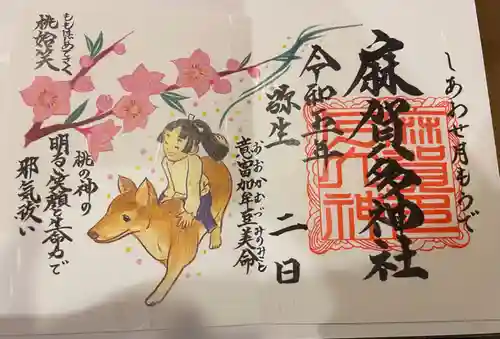 しあわせ月もうで
麻賀多神社
令和五年
弥生 二日
意富加牟豆美命
おおかむづみのみこと
桃始笑
ももはじめてさく
桃の神の
明るい笑顔と生命力で
邪気祓い